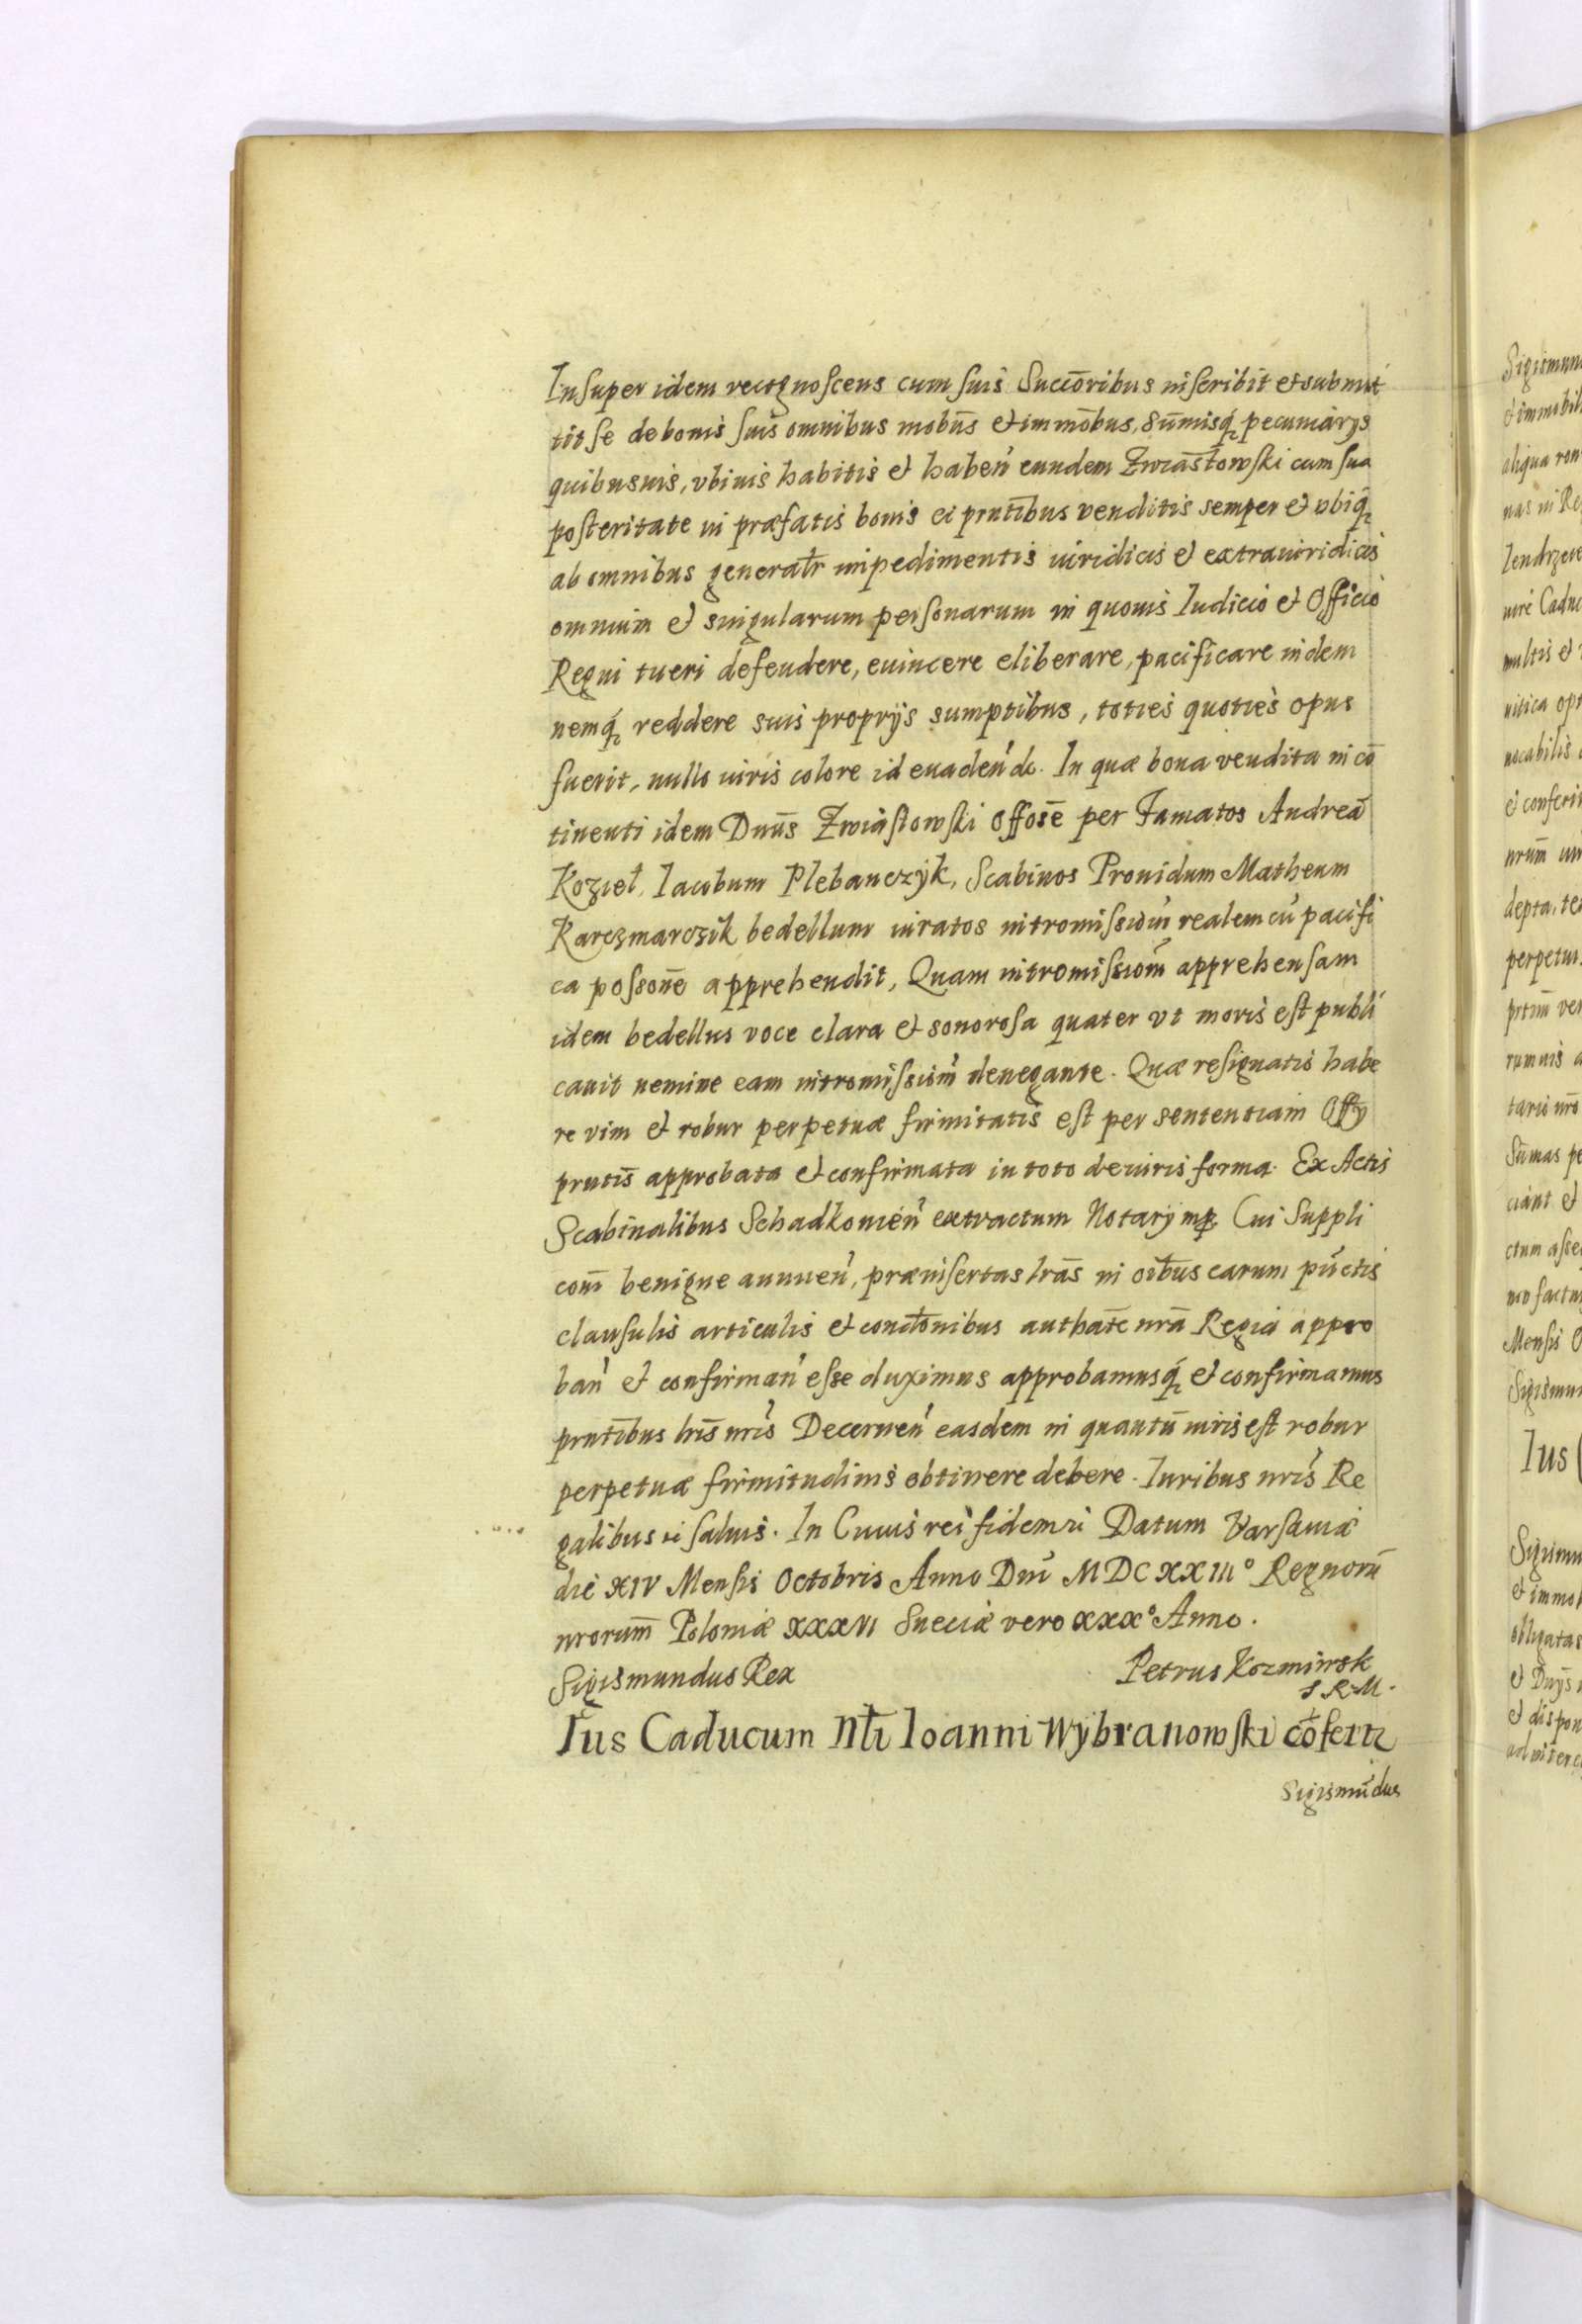 Insuper idem recognoscens cum suis Succōribus inscribit et submit
tit se de bonis suis omnibus mobūs et immōbus, sūmisq́ pecuniarys
quibusuis, vbiuis habitis et haben̄ eundem Zwiastowski cum sua
posteritate in præfatis bonis ei prntībus venditis semper et vbiq́
ab omnibus generalr̄ impedimentis iuridicis et extraiuridicis
omnium et singularum personarum in quouis Iudicio et Officio
Regni tueri defendere, euincere eliberare, pacificare indem
nemq́ reddere suis proprijs sumptibus, toties quoties opus
fuerit, nullo iuris colore id euaden̄do. In quæ bona vendita in cō
tinenti idem Dnūs Zwiastowski Offosē per Famatos Andreā
Kozieł, Iacobum Plebanczyk, Scabinos Prouidum Matheum
Karczmarczik bedellum iuratos intromissiom̄ realem cū pacifi
ca possonē apprehendit, Quam intromissiom̄ apprehensam
idem bedellus voce clara et sonorosa quater vt moris est publi
cauit nemine eam intromissiom̄ denegante. Quæ resignatio habe
re vim et robur perpetuæ firmitatis est per sententiam Offy
prntis̄ approbata et confirmata in toto de iuris forma. Ex Actis
Scabinalibus Schadkouien̄ extractum Notary mp Cui Suppli
com̄ benigne annuen̄, præinsertas lrās in oībus earum pūctis
clausulis articulis et conditōnibus authātē nrā Regia appro
ban̄ et confirman̄ esse duximus approbamusq́ et confirmamus
prntībus lrīs nrīs Decernen̄ easdem in quantū iuris est robur
perpetuæ firmitudinis obtinere debere. Iuribus nrīs Re
galibus ei saluis. In Cuius rei fidem ri Datum Varsauiæ
die XIV Mensis Octobris Anno Dnī MDCXXIII° Regnorū
nrorum̄ Poloniæ XXXVI Sueciæ vero XXX° Anno.
Sigismundus Rex Petrus Kozminsk
S R M.
Ius Caducum Nłi Ioanni Wybranowski cōfertr
Sigismūdus